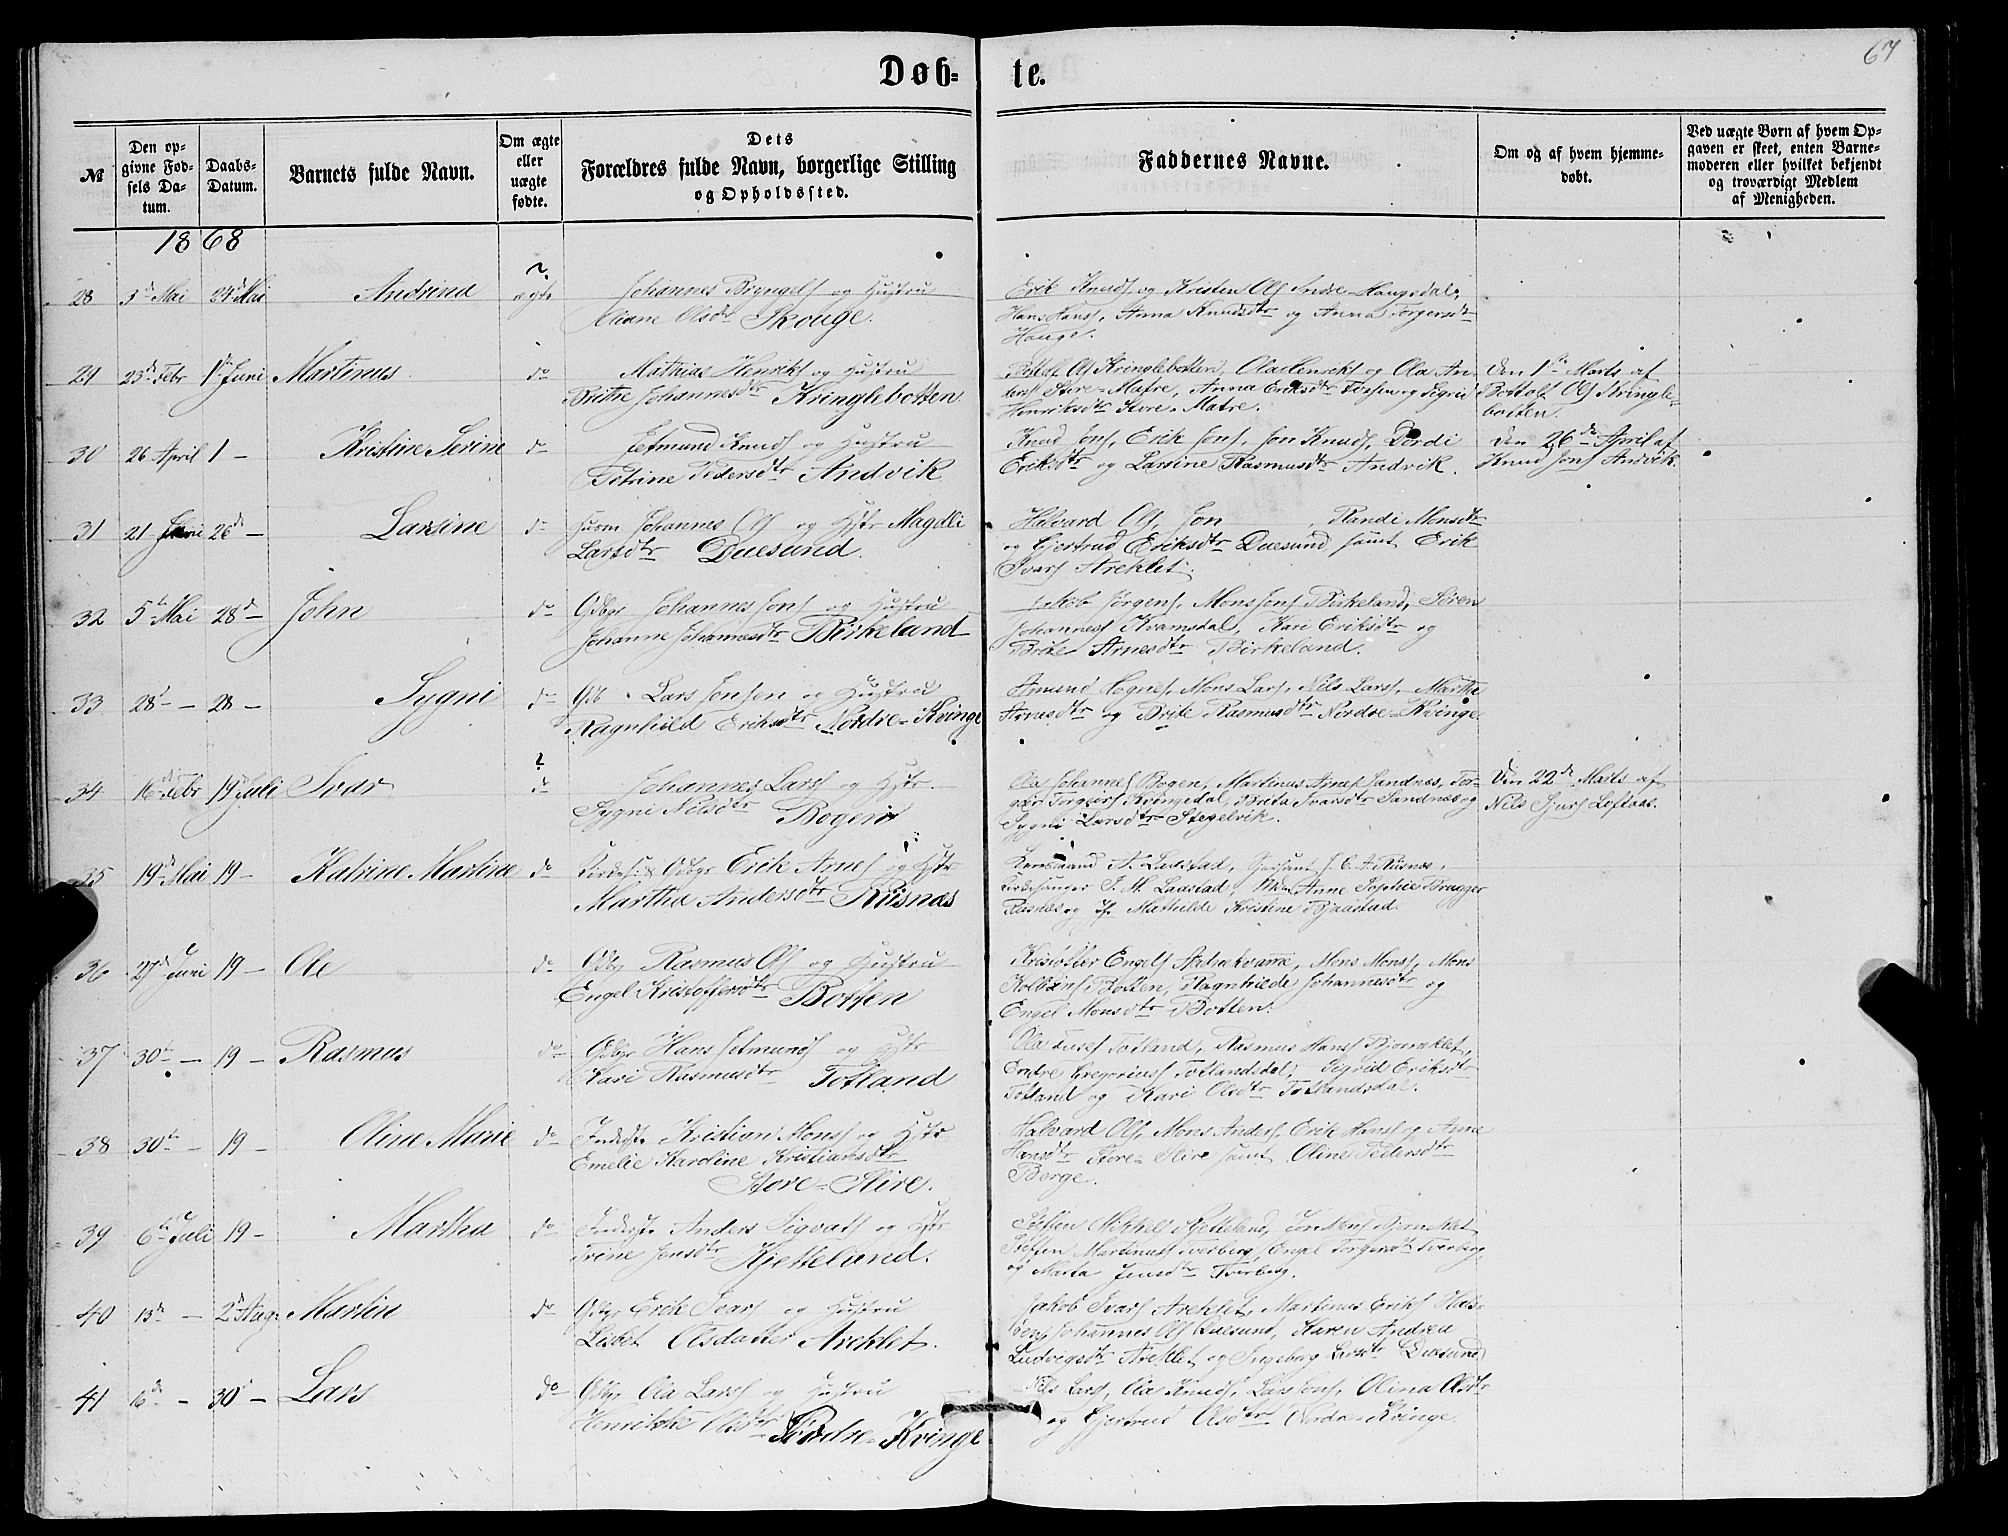 67
Døb-te.
№
Den opgivne Fødsels Datum.
Daabs-Datum.
Barnets fulde Navn.
Om ægte eller uægte fødte.
Dets Forældres fulde Navn, borgerlige Stilling og Opholdssted.
Faddernes Navne.
Om og af hvem hjemmedøbt.
Ved uægte Børn af hvem Opgaven er skeet, enten Barnemoderen eller hvilket bekjendt og troværdigt Medlem af Menigheden.
1868
28 3d Mai 24d Mai Andrina ægte Johannes Brengels og Hustru
Olsdtr Skouge.
Erik Knuds og Kristen Ols Indre-Haugsdal,
Hans Hans, Anna Knudsdtr og Anna Torgersdtr
Hauge.
29 23d Febr 1ste Juni Martinus do Mathias Henriks og Hustru
Brithe Johannesdtr Kringlebotten
Ols Kringlebotten, Ola Henriks og Ola An-
ders Store-Matre, Anna Eriksdtr og Sigrid
Henriksdtr Store-Matre.
Den 1ste Marts af
Bottolf Ols Kringle-
botten.
30 26 April 1 - Kristine Serine do Jetmund Knuds og Hustru
Petrine Pedersdtr Andvik
Knud Jons, Erik Jons, Jon Knuds, Dordi
Eriksdtr og Larsine Rasmusdtr Andvik.
Den 26de April af
Knud Jons Andvik.
31 21 Juni 26de - Larsine do Husm Johannes Ols og Hstr Magdli
Larsdtr Duesund.
Halvard Ols, Jon , Randi Monsdtr
og Gjertrud Eriksdtr Duesund samt Erik
Ivars Areklet.
32 5te Mai 28d - John do Gdbr Johannes Jons og Hustru
Johanne Johannesdtr Birkeland
Jakob Jørgens, Mons Jons Birkeland, Søren
Johannes Kvamsdal, Kari Eriksdtr og
Brite Arnesdtr Birkeland.
33 28d - - 28 - Sygni do Gdb Lars Jonsen og Hustru
Ragnhild Eriksdtr Nordre-Kvinge
Amund Hognes, Mons Lars, Nils Lars, Martha
Arnesdtr og Brite Rasmusdtr Nordre-Kvinge.
34 16de Febr 19d Juli Ivar do Johannes Lars og Hstr.
Sygni Nilsdtr Bogen
Ola Johannes Bogen, Martinus Arnes Sandnes, Tor-
ger Torgers Kvingedal, Brita Ivarsdtr Sandnes og
Sygni Larsdtr Stegelvik.
Den 22de Marts af
Nils Sjurs Leftaas.
35 19d Mai 19 - Katrine Martine do Gdbr Erik Arnes og Hstr
Martha Andersdtr Risnæs
Ladstad, J. C. A. Risnæs,
Kirkesanger J. M. Ladstad, Anne Sophie Brugger
Risnæs og Mathilde Kristine Bjaastad.
36 27d Juni 19 - Ole do Gdbr Rasmus Ols og Hustru
Engel Kristoffersdtr Botten
Kristoffer Engels Andrekvame, Mons Mons, Mons
Kolbeins Botten, Ragnhilde Johannesdtr og
Engel Monsdtr Botten.
37 30te - 19 - Rasmus do Gdbr Hans Jetmunds og Hstr
Kari Rasmusdtr Totland
Ola Totland, Rasmus Hans Bjørneklet,
Endre Gregorius Totlandsdal, Sigrid Eriksdtr
Totland og Kari Olsdtr Totlandsdal.
38 30te - 19 - Oline Marie do Inderste Kristian Mons og Hstr
Emelie Karoline Kristiansdtr
Store-Slire.
Halvard Ols, Mons Anders, Erik Hans og Anna
Hansdtr Store-Slire samt Oline Pedersdtr
Berge.
39 6te Juli 19 - Martha do Inderste Anders Sigvats og Hstr
Trine Jensdtr Kjetteland.
Steffen Mikkels Kjetteland, Bjørneklet
Steffen Martinus Tverberg, Engel Torgersdtr Tverberg
og Marta Jensdtr Tverberg.
40 13de - 2d Aug. Martin do Gdbr Erik Ivars og Hustru
Lisbet Olsdatter Areklet.
Jakob Ivars Areklet, Martinus Eriks Hals-
øen, Johannes Ols Duesund, Karen Andrea
Ludvigsdtr Areklet og Ingeborg Larsdtr Duesund
41 16de - 30d - Lars do Gdbr Ola Lars og Hustru
Henrikke Olsdtr Nordre-Kvinge
Nils Lars, Ola Knuds, Lars Jons, Olina Olsdtr
og Gjertrud Olsdtr Nordre-Kvinge.